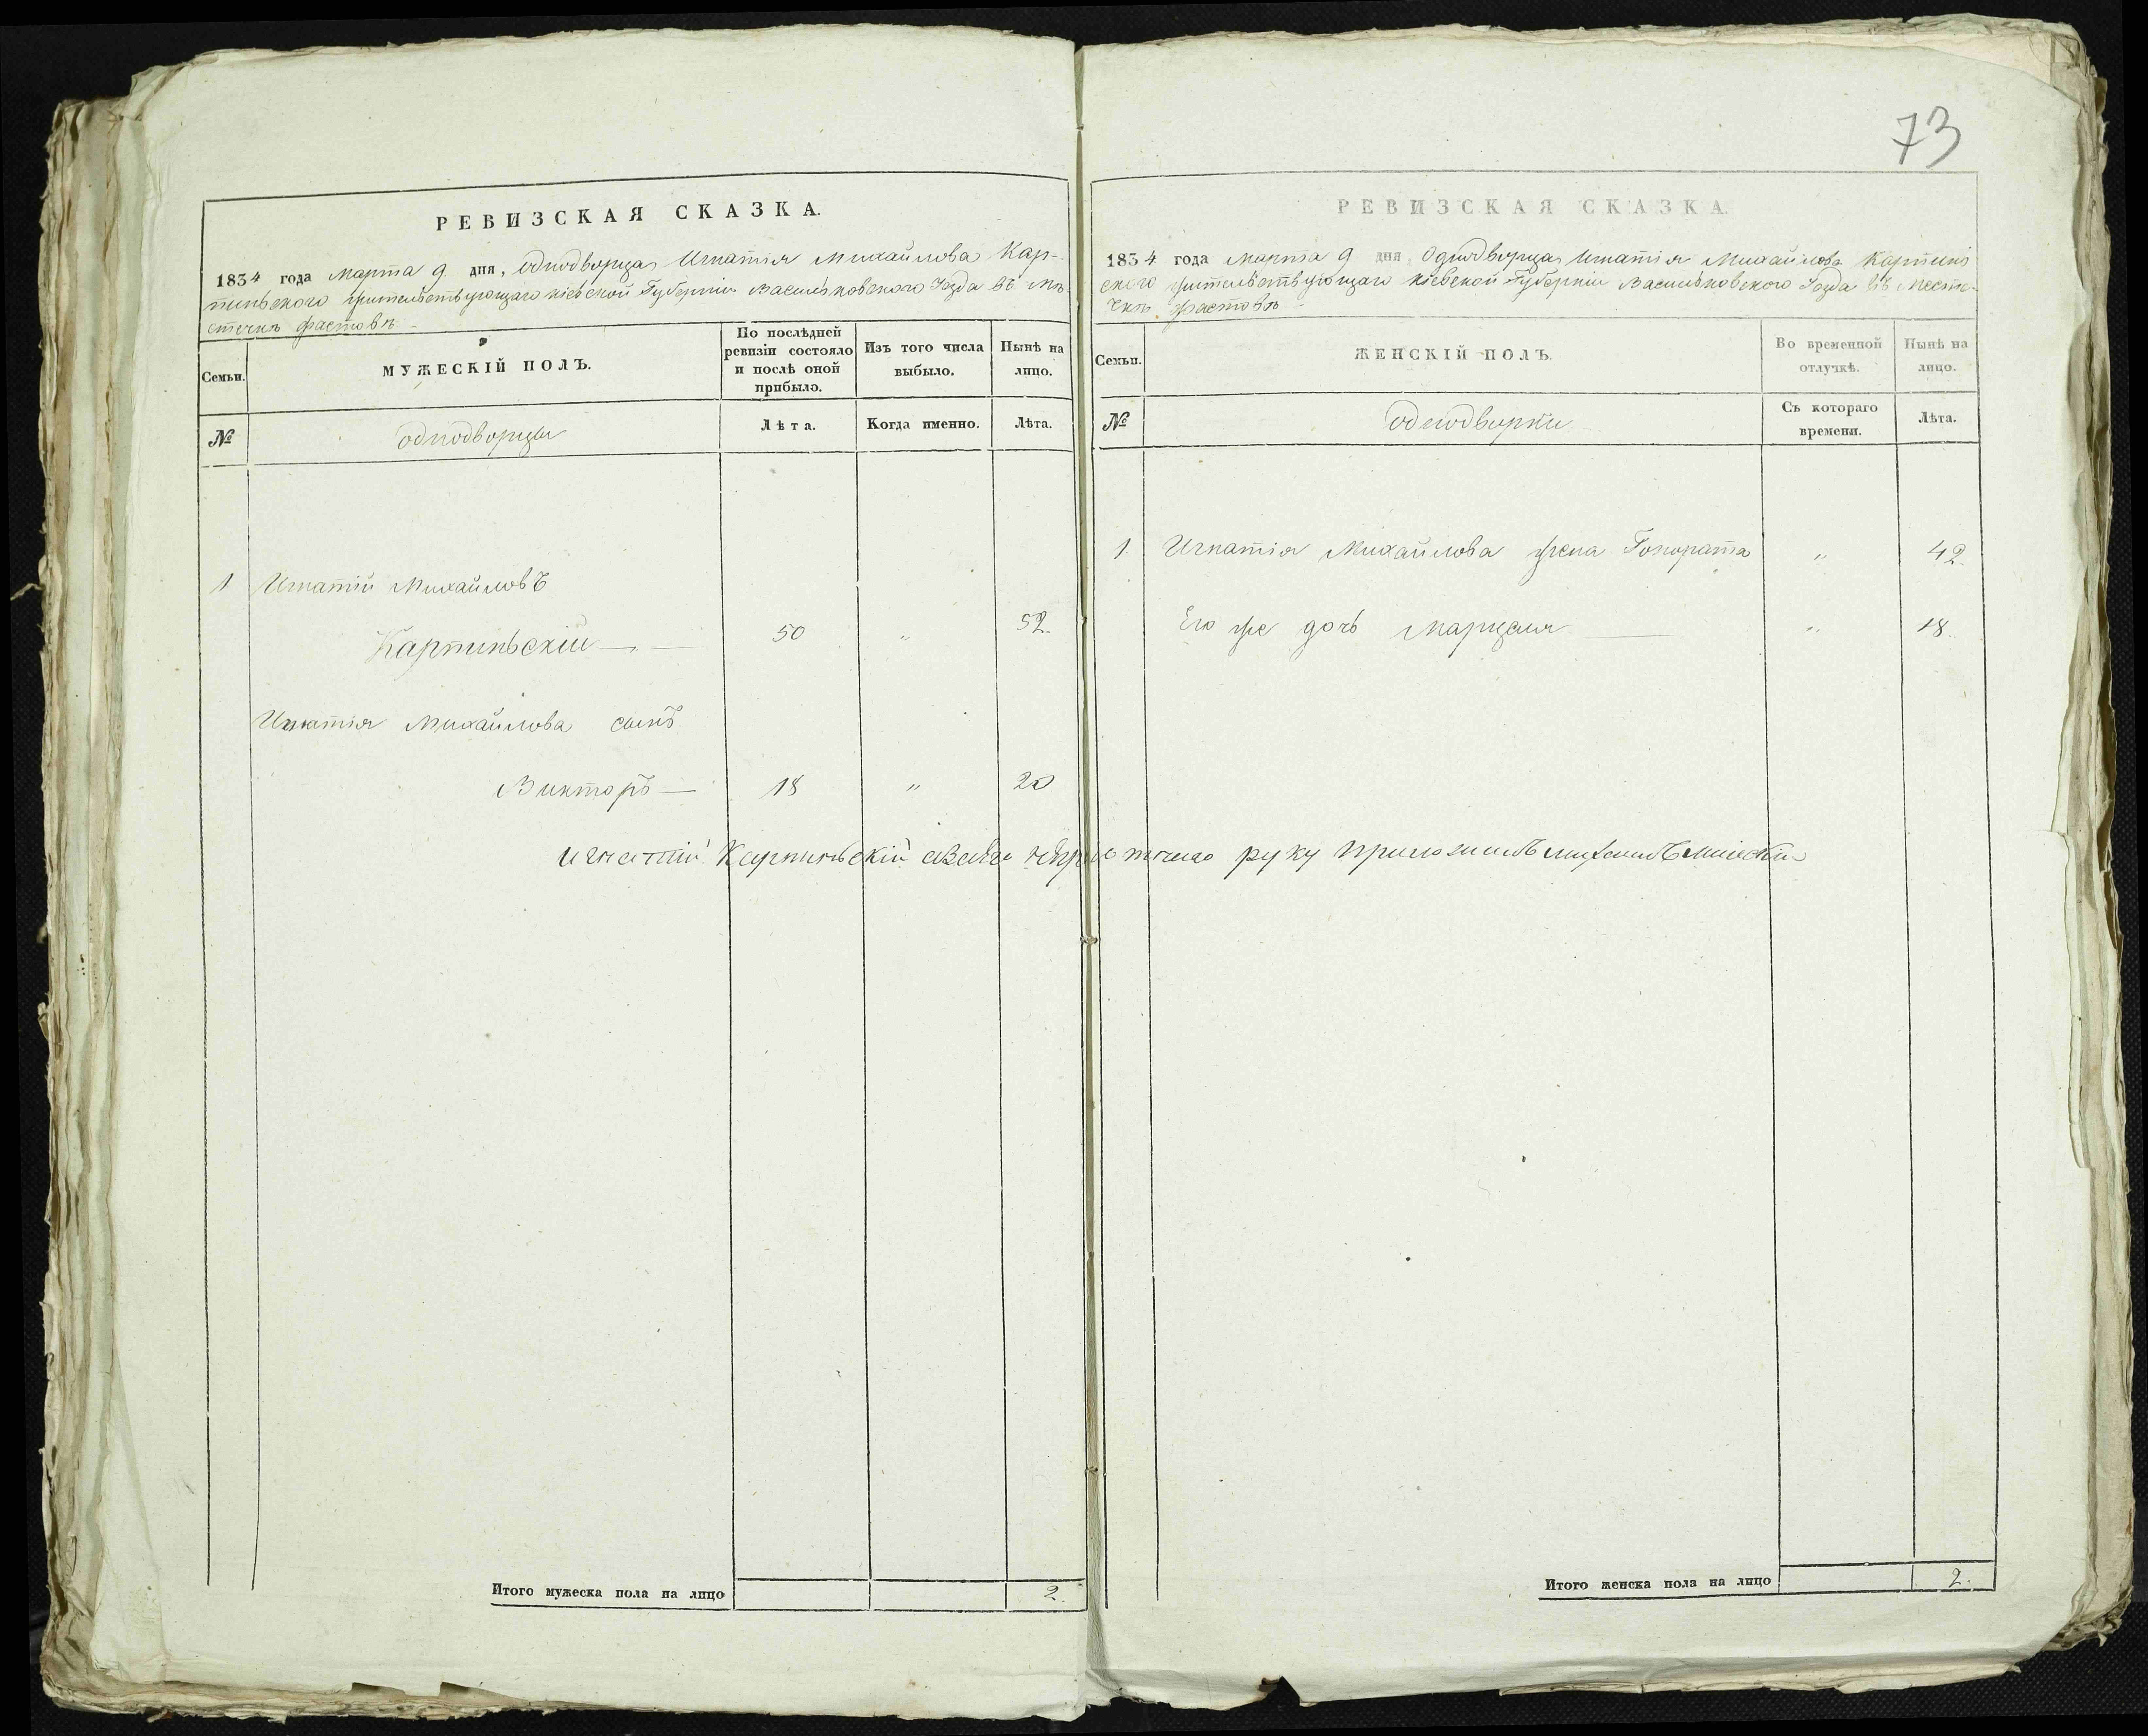 73
РЕВИЗСКАЯ СКАЗКА.
1834 года Марта 9 дня, однодворца Игнатія Михайлова Кар-
пиньского жительствующаго Кіевской Губерніи Васильковского Уезда въ Мѣ-
стечкѣ Фастовѣ
Семьи.
МУЖЕСКІЙ ПОЛЪ.
По послѣдней ревизіи состояло и послѣ оной прибыло.
Изъ того числа выбыло.
Нынѣ на лицо.
№
однодворцы
Лѣта.
Когда именно.
Лѣта.
1 Игнатій Михайловъ
Карпиньскій — 50 „ 52.
Игнатія Михайлова сынъ
Викторъ — 18 „ 20
Итого мужеска пола на лицо 2.
РЕВИЗСКАЯ СКАЗКА.
1834 года Марта 9 дня Однодворца Игнатія Михайлова Карпинь
ского жительствующаго Кіевской Губерніи Васильковского Уезда въ Месте-
чкѣ Фастовѣ
Семьи.
ЖЕНСКІЙ ПОЛЪ.
Во временной отлучкѣ.
Нынѣ на лицо.
№
однодворки
Съ котораго времени.
Лѣта.
1 Игнатія Михайлова жена Гонората „ 42.
Его же дочь Марцеля — „ 18.
Игнатий Карпиньский руку приложилъ
Итого женска пола на лицо 2.